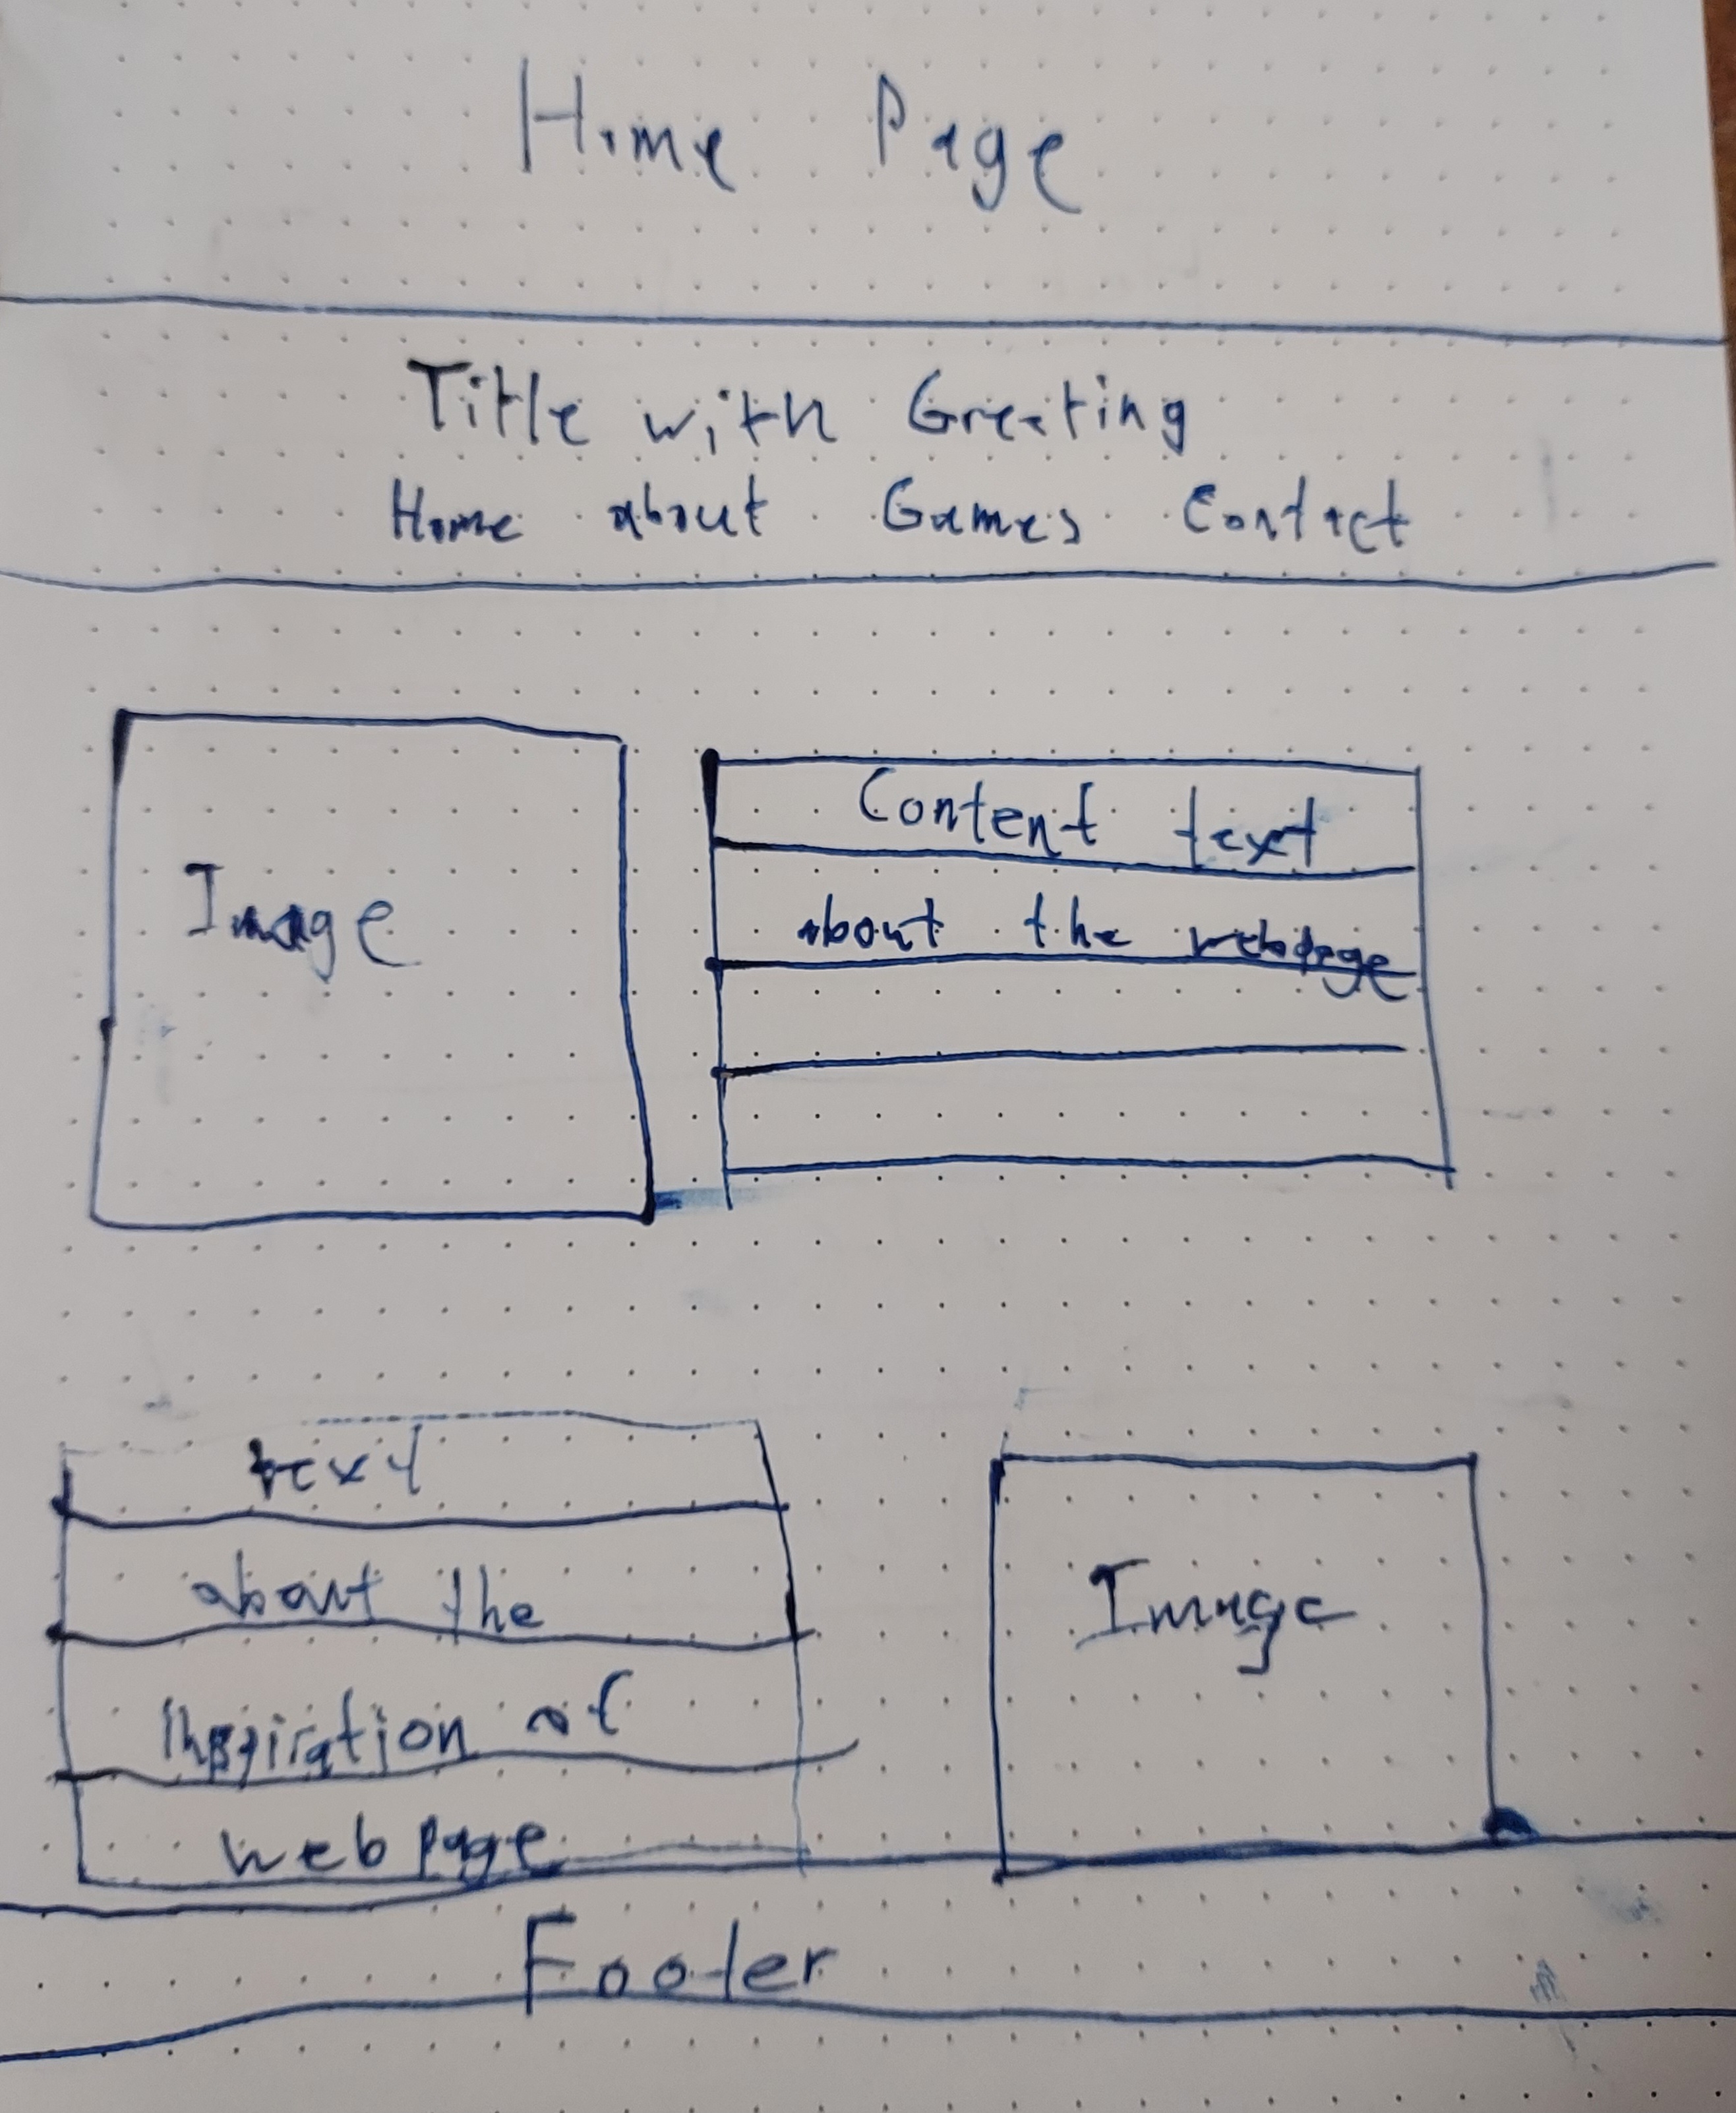 Home Page
Title with Greeting
Home about Games Contact
Image
Content text
about the webpage
text
about the
Inspiration of
web page
Image
Footer